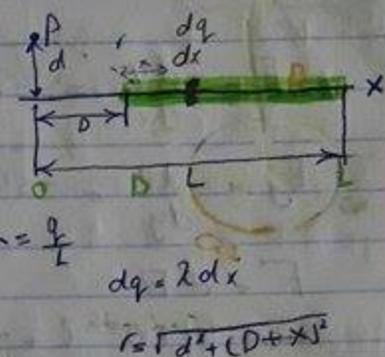 P
dq
d
dx
x
X
D
O D L L
= q/L
dq = λdx
r = √d²+(D+X)²